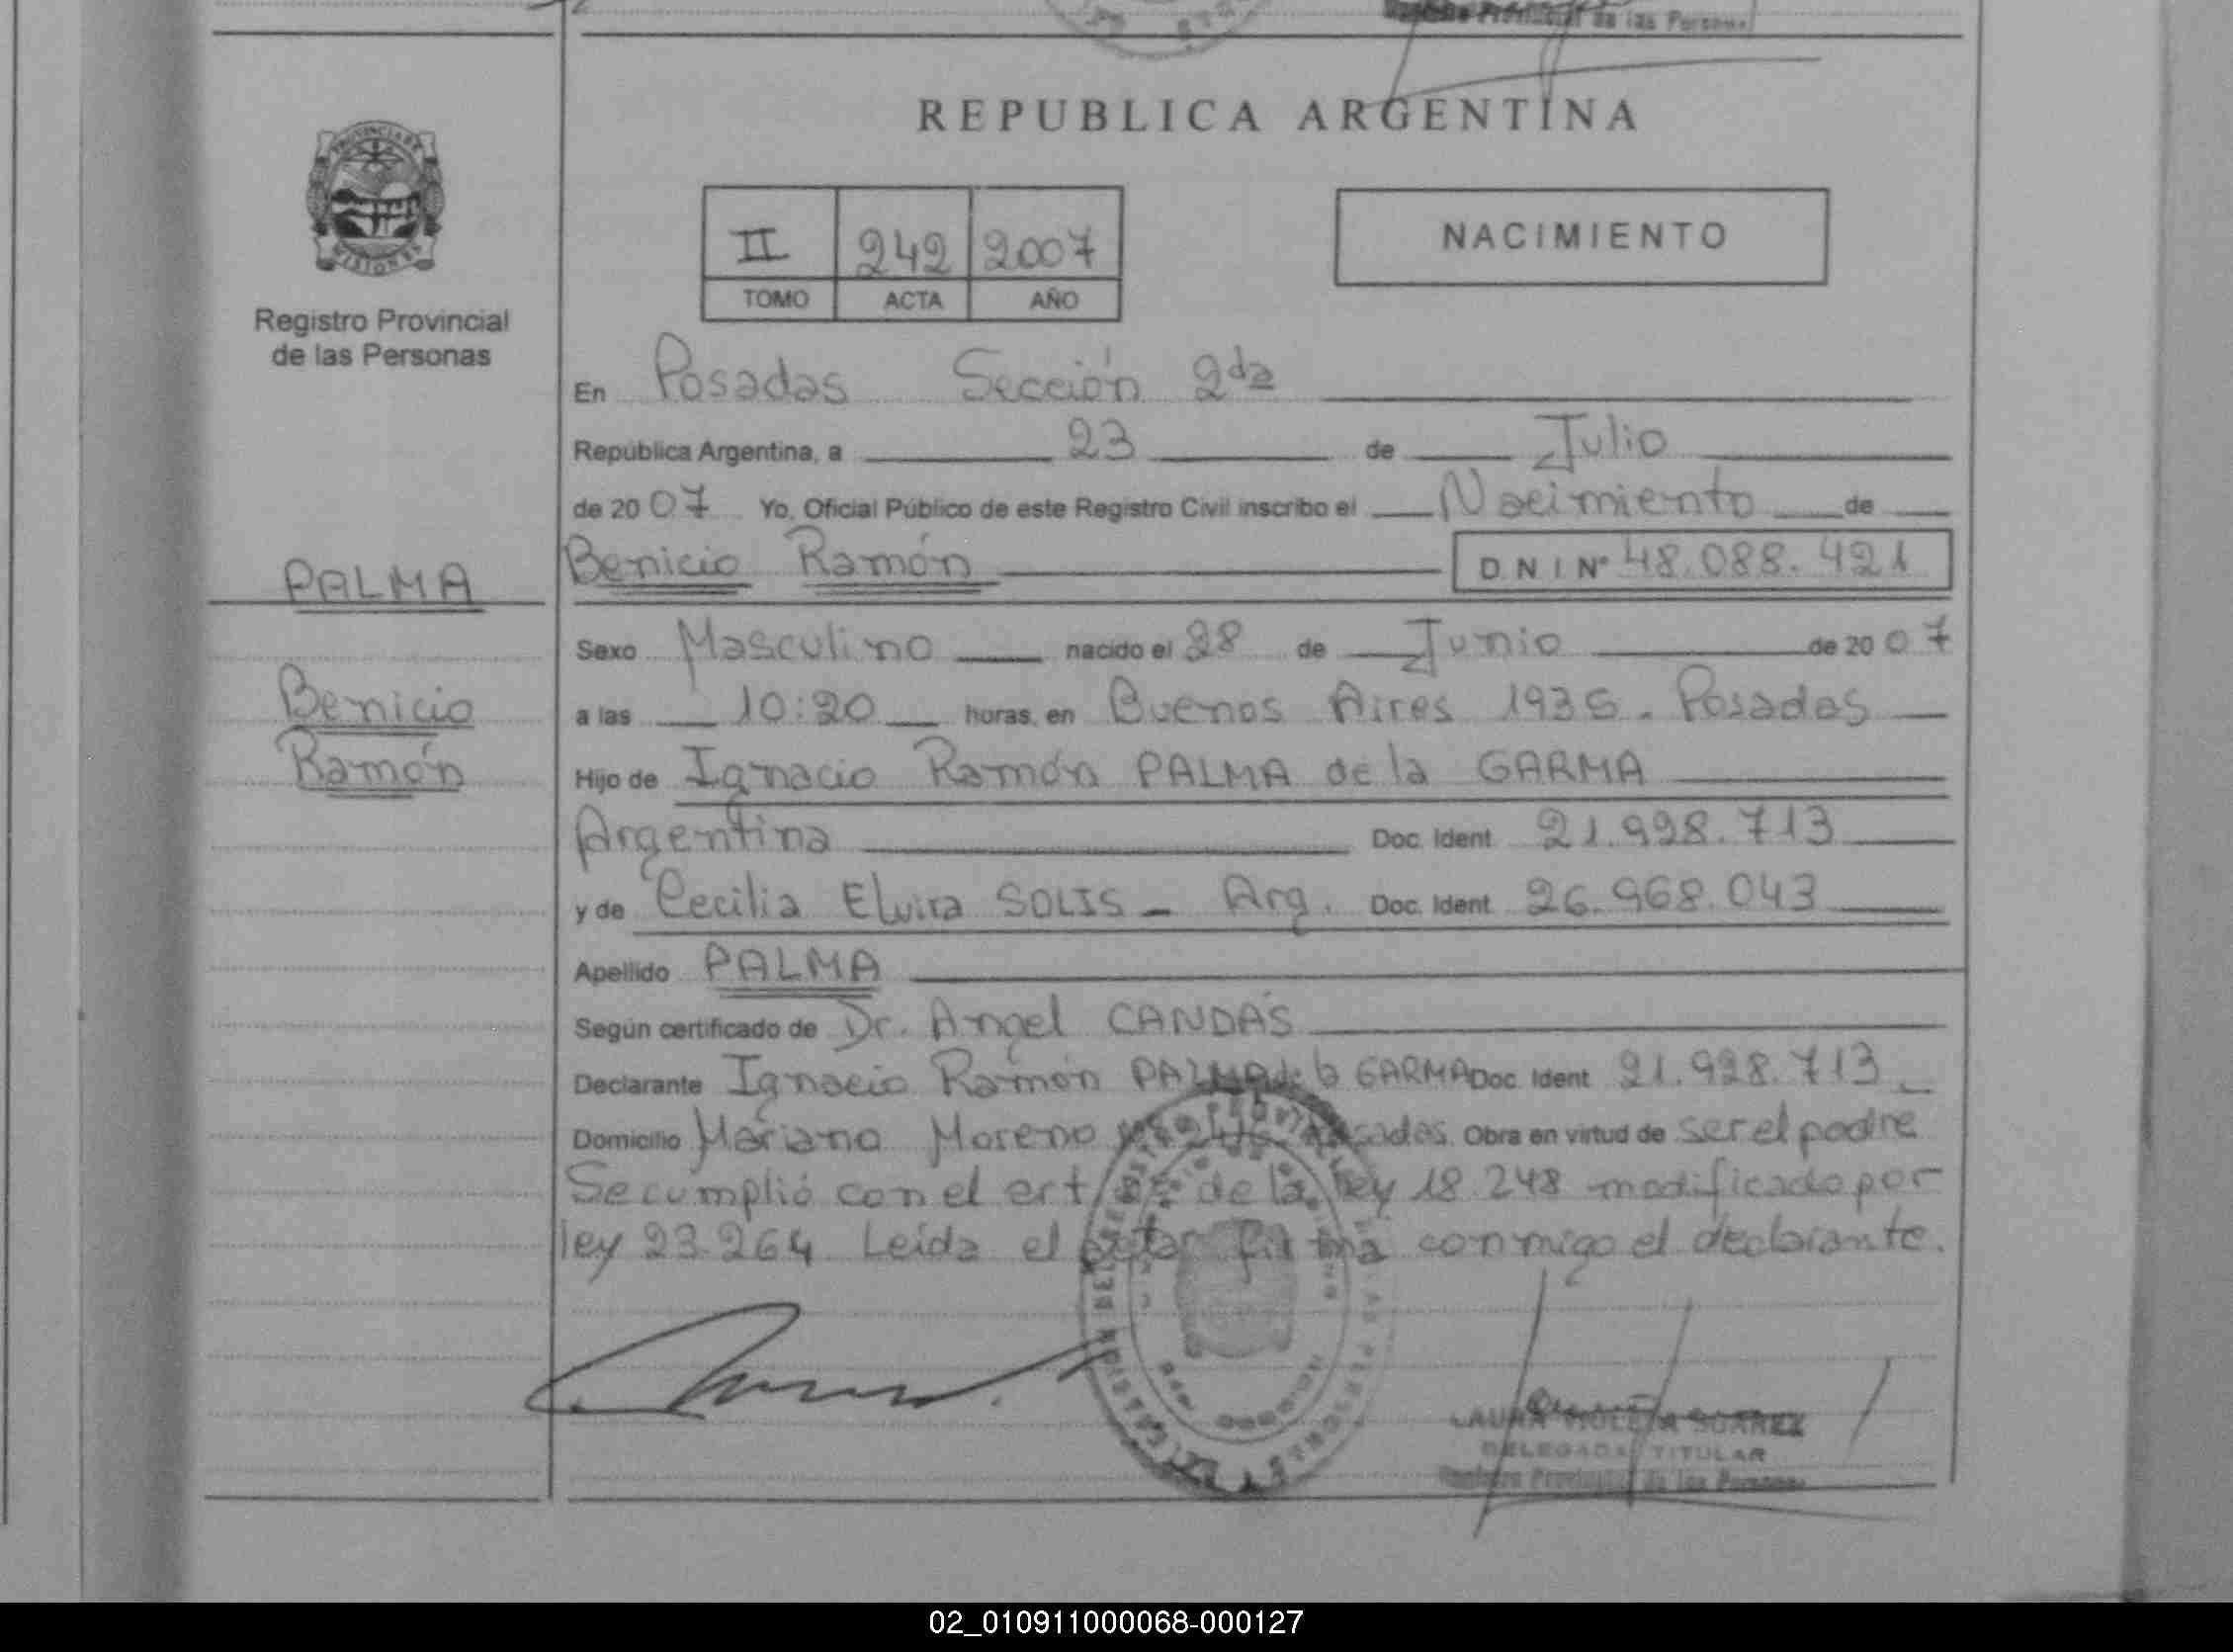 de las Personas
REPUBLICA ARGENTINA
PROVINCIA DE
MISIONES
Registro Provincial
de las Personas
II 242 2007
TOMO ACTA AÑO
NACIMIENTO
En Posadas Sección 2da
República Argentina, a 23 de Julio
de 2007 Yo, Oficial Público de este Registro Civil inscribo el Nacimiento de
Benicio Ramón D N I Nº 48.088.421
PALMA
Benicio
Ramón
Sexo Masculino nacido el 28 de Junio de 2007
a las 10:20 horas, en Buenos Aires 1935. Posadas
Hijo de Ignacio Ramón PALMA de la GARMA
Argentina Doc. Ident. 21.928.713
y de Cecilia Elvira SOLIS - Arg. Doc. Ident. 26.968.043
Apellido PALMA
Según certificado de Dr. Angel CANDÁS
Declarante Ignacio Ramón PALMA de la GARMA Doc. Ident. 21.928.713
Domicilio Mariano Moreno Posadas. Obra en virtud de ser el padre
Se cumplió con el art de la ley 18.248 modificado por
ley 23.264 Leída el acta firma conmigo el declarante.
LAURA VIOLETA SUAREZ
DELEGADA TITULAR
Registro Provincial de las Personas
02_010911000068-000127